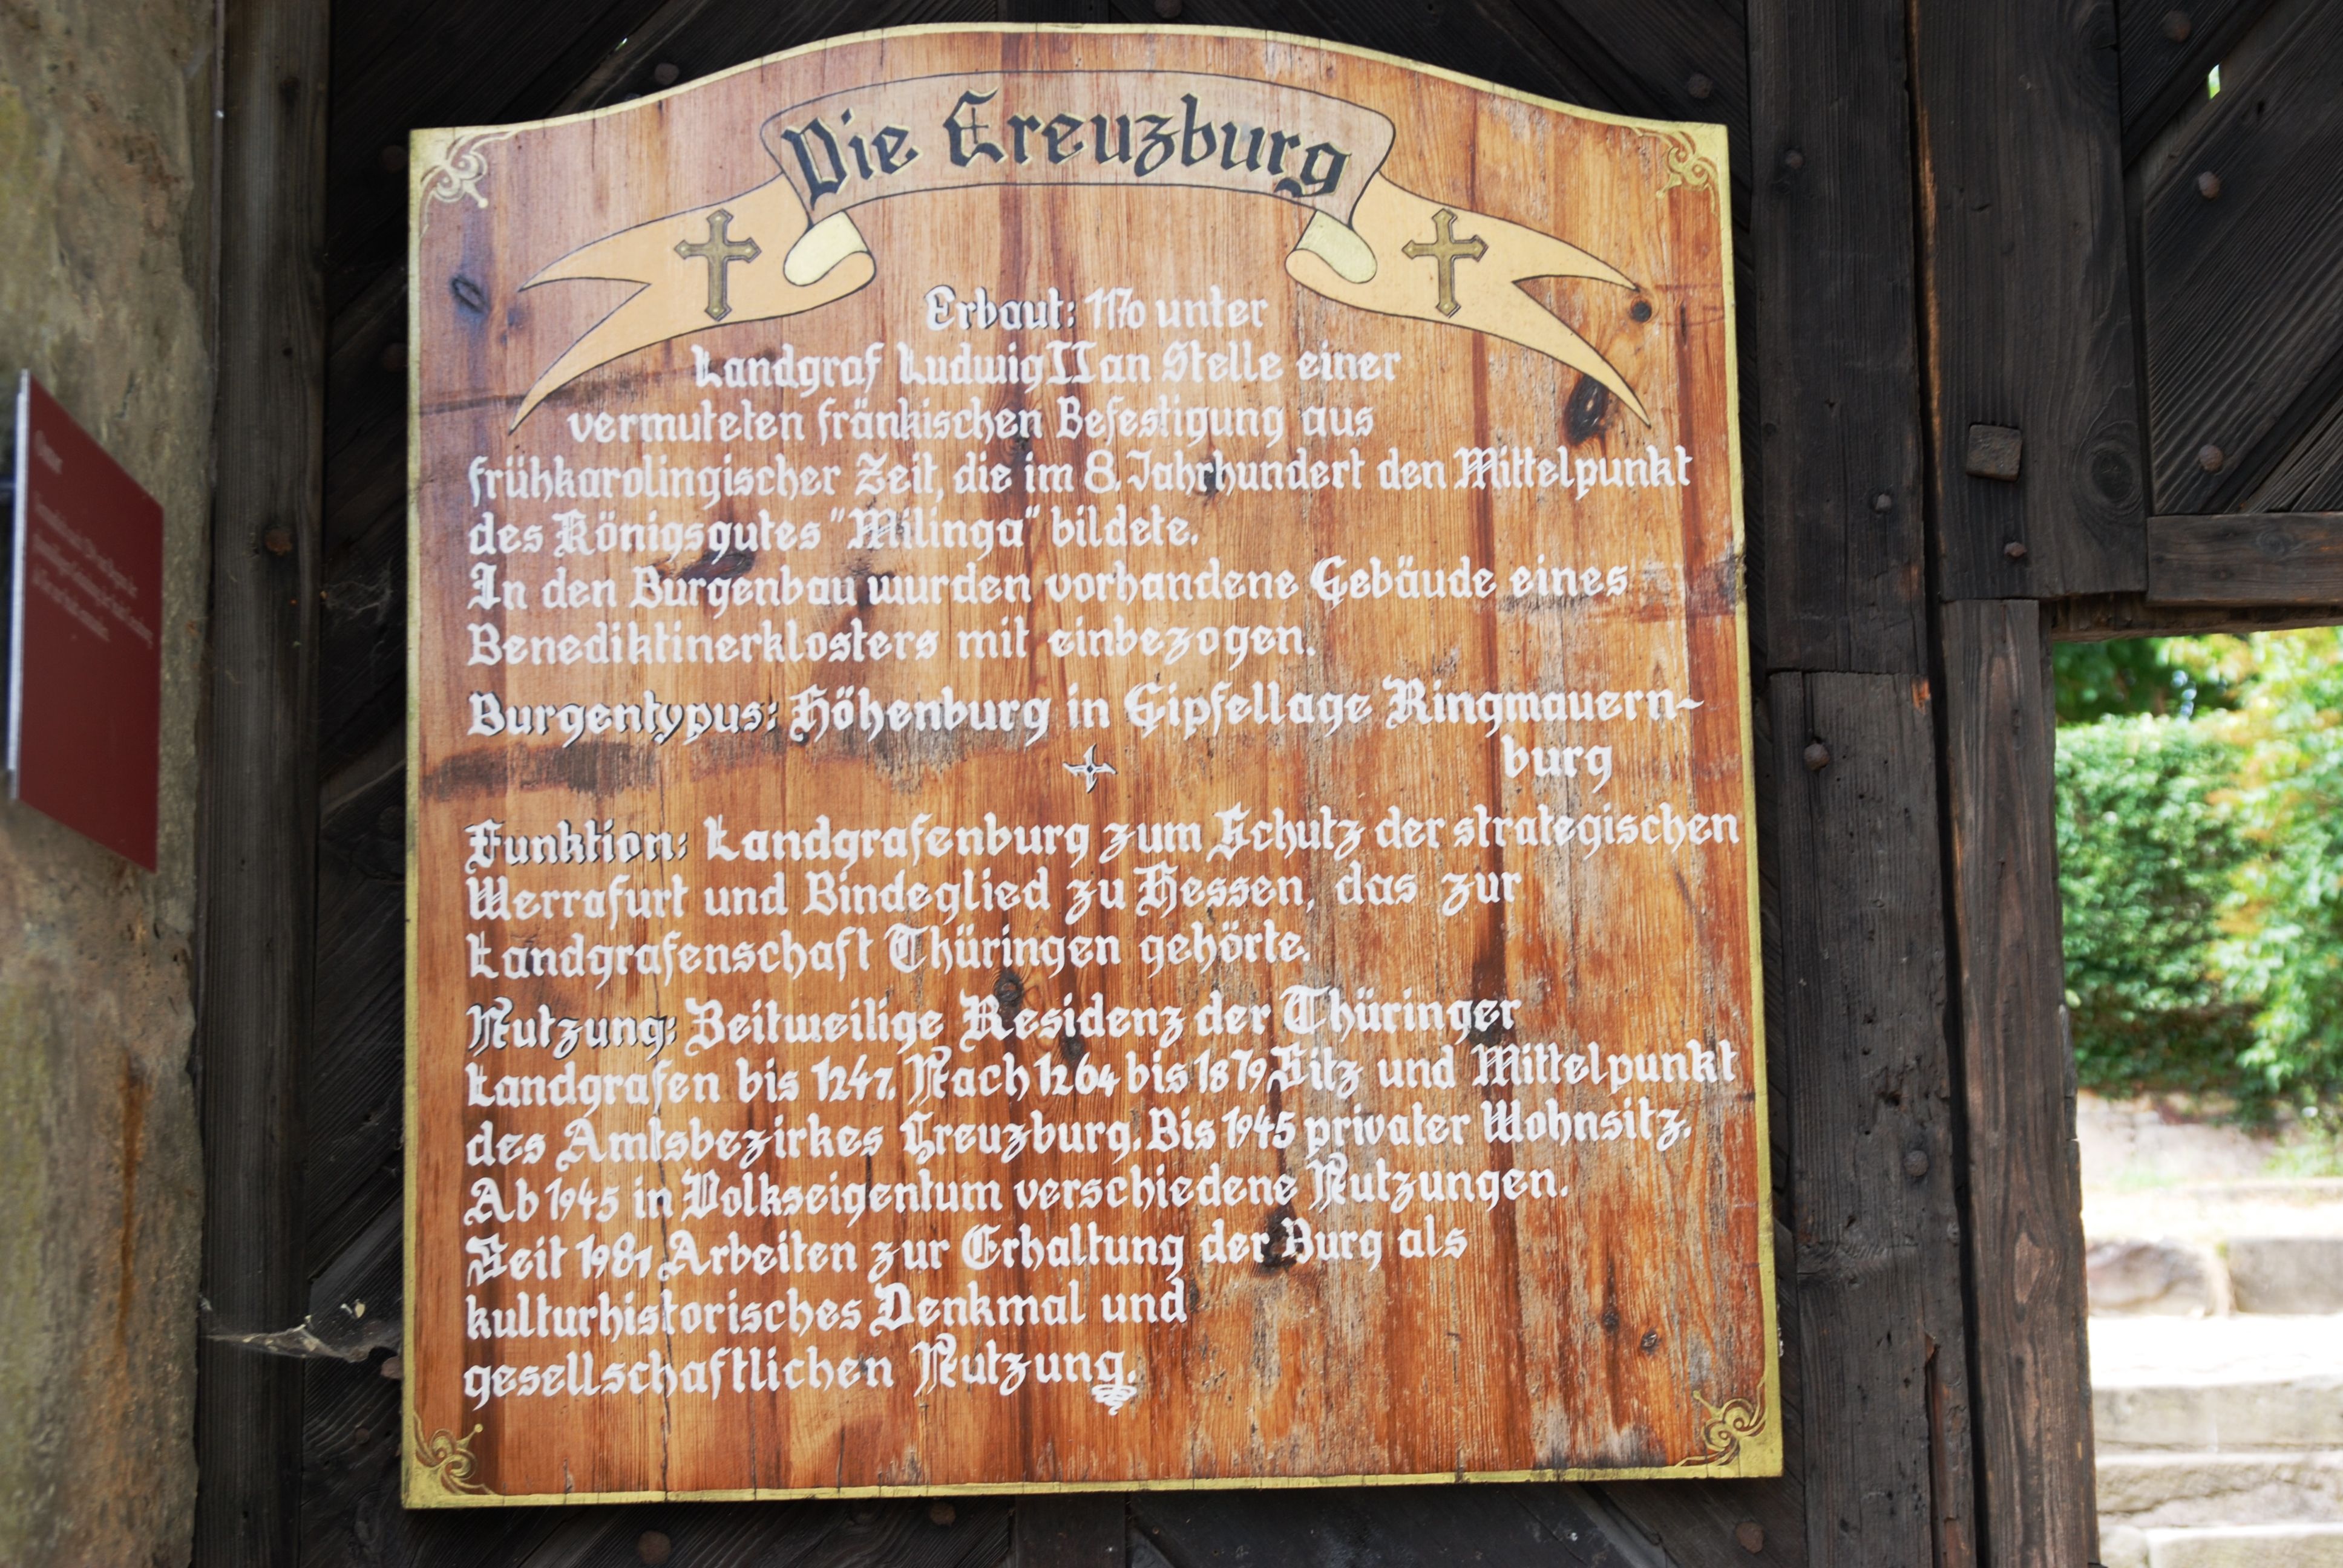 Die Creuzburg
Erbaut: 1170 unter
Landgraf Ludwig II an Stelle einer
vermuteten fränkischen Befestigung aus
frühkarolingischer Zeit, die im 8. Jahrhundert den Mittelpunkt
des Königsgutes "Milinga" bildete.
In den Burgenbau wurden vorhandene Gebäude eines
Benediktinerklosters mit einbezogen.
Burgentypus: Höhenburg in Gipfellage Ringmauern-
burg
Funktion: Landgrafenburg zum Schutz der strategischen
Werrafurt und Bindeglied zu Hessen, das zur
Landgrafenschaft Thüringen gehörte.
Nutzung: Zeitweilige Residenz der Thüringer
Landgrafen bis 1247. Nach 1264 bis 1879 Sitz und Mittelpunkt
des Amtsbezirkes Creuzburg. Bis 1945 privater Wohnsitz.
Ab 1945 in Volkseigentum verschiedene Nutzungen.
Seit 1981 Arbeiten zur Erhaltung der Burg als
kulturhistorisches Denkmal und
gesellschaftlichen Nutzung.